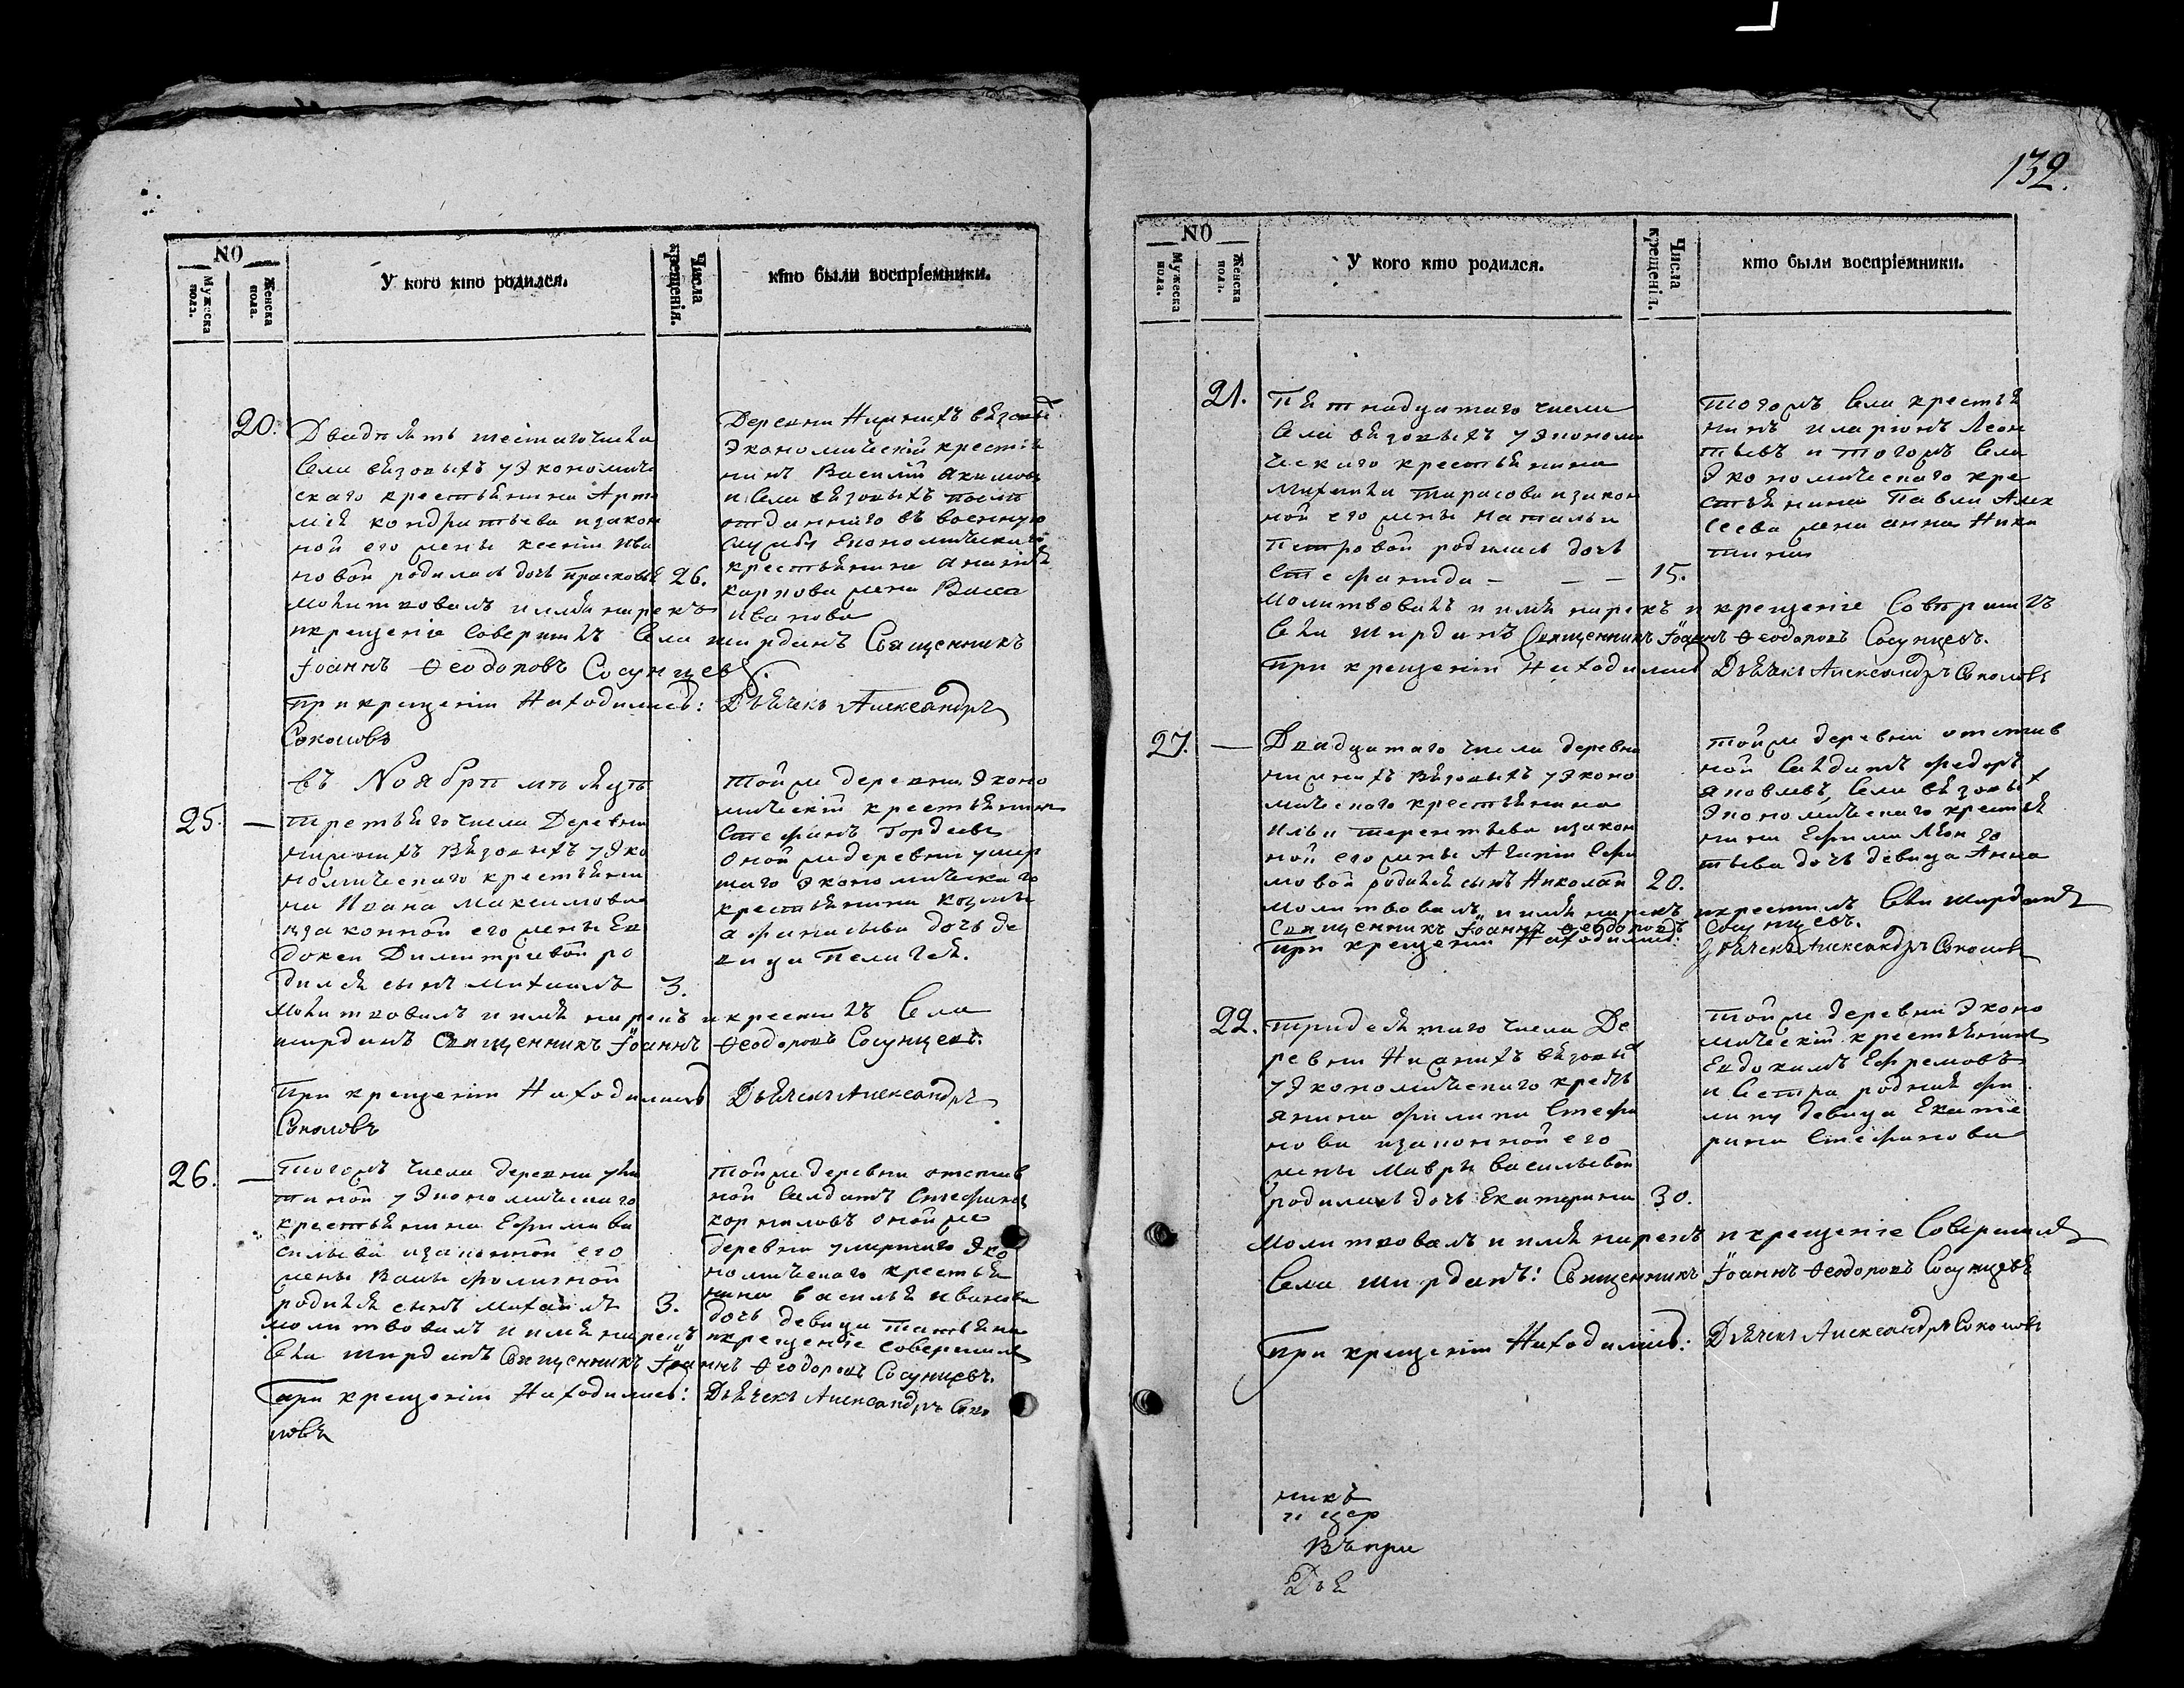 132.
NO
Мужеска пола.
Женска пола.
У кого кто родился.
Числа крещенія.
кто были воспріемники.
20.
Двадцять шестаго числа
села вязовыхъ у Экономиче
скаго крестьянина Арте
мія кондратьева и закон
ной его жены ксеніи Ива
новой родилась дочь Прасковья
26.
Деревни Нижнихъ вязовы
Экономическій крестья
нинъ Василій Акимовъ
и села вязовыхъ
отданнаго въ военную
службу Економическаго
крестьянина
карпова жена Васса
Иванова
молитвовалъ и имя нарекъ
и крещеніе совершилъ села ширданъ Священникъ
Іоаннъ Ѳеодоровъ Сосунцевъ.
при крещеніи Находились: Дьячекъ Александръ
Соколовъ
въ Ноябрѣ мѣсяцѣ
25. —
третьяго числа Деревни
нижнихъ Вязовыхъ у Эко
номическаго крестьяни
на Ивана Максимова
и законной его жены Ев
докеи Димитріевой ро
дился сынъ михаилъ
3.
тойже деревни Эконо
мическій крестьянинъ
Стефанъ Гордеевъ
оной же деревни умер
шаго экономическаго
крестьянина козмы
афанасьева дочь де
вица Пелагея.
молитвовалъ и имя нарекъ и крестилъ Села
ширданъ Священникъ Іоаннъ Ѳеодоровъ Сосунцевъ.
При крещеніи Находились Дьячекъ Александръ
Соколовъ
26. —
Тогожъ числа деревни
у Экономическаго
крестьянина Ефима Ва
сильева и законной его
жены
родился сынъ михаилъ
3.
тойже деревни отстав
ной солдатъ Стефанъ
корниловъ оной же
деревни умершаго Эко
номическаго крестья
нина василья иванова
дочь девица татьяна
молитвовалъ и имя нарекъ и крещеніе совершилъ
села ширданъ Священникъ Іоаннъ Ѳеодоровъ Сосунцевъ.
При крещеніи Находились: Дьячекъ Александръ Соко
ловъ
NO
Мужеска пола.
Женска пола.
У кого кто родился.
Числа крещенія.
кто были воспріемники.
21.
Пятнадцатаго числа
села вязовыхъ у Экономи
ческаго крестьянина
михаила тарасова и закон
ной его жены натальи
Петровой родилась дочь
Стефанида — — —
15.
тогожъ села крестья
нинъ иларіонъ Леон
тьевъ и тогожъ села
Экономическаго кре
стьянина Павла Алек
сеева жена анна Ники
тина
молитвовалъ и имя нарекъ и крещеніе Совершилъ
села ширданъ Священникъ Іоаннъ Ѳеодоровъ Сосунцевъ.
При крещеніи Находились Дьячекъ Александръ Соколовъ
27. —
Двадцатаго числа деревни
нижнихъ вязовыхъ у Эконо
мическаго крестьянина
Ильи терентьева и закон
ной его жены Агапіи Ефи
мовой родился сынъ Николай
20.
тойже деревни отстав
ной салдатъ федоръ
яковлевъ, села вязовых
Экономическаго крестья
нина Ефима Леон
тьева дочь девица Анна
молитвовалъ и имя нарекъ и крестилъ села ширданъ
Священникъ Іоаннъ Ѳеодоровъ Сосунцевъ.
При крещеніи Находились: Дьячекъ Александръ Соколовъ
22.
тридесятаго числа Де
ревни Нижнихъ вязовых
у Экономическаго кресть
янина филипа Стефа
нова и законной его
жены Мавры васильевой
родилась дочь Екатерина
30.
тойже деревни Эконо
мическій крестьянинъ
Евдокимъ Ефремовъ
и сестра родная фи
липу девица Екате
рина Стефанова
молитвовалъ и имя нарекъ и крещеніе Совершилъ
Села ширданъ: Священникъ Іоаннъ Ѳеодоровъ Сосунцевъ
При крещеніи Находились: Дьячекъ Александръ Соколовъ
никъ
и цер
Въ при
Дья